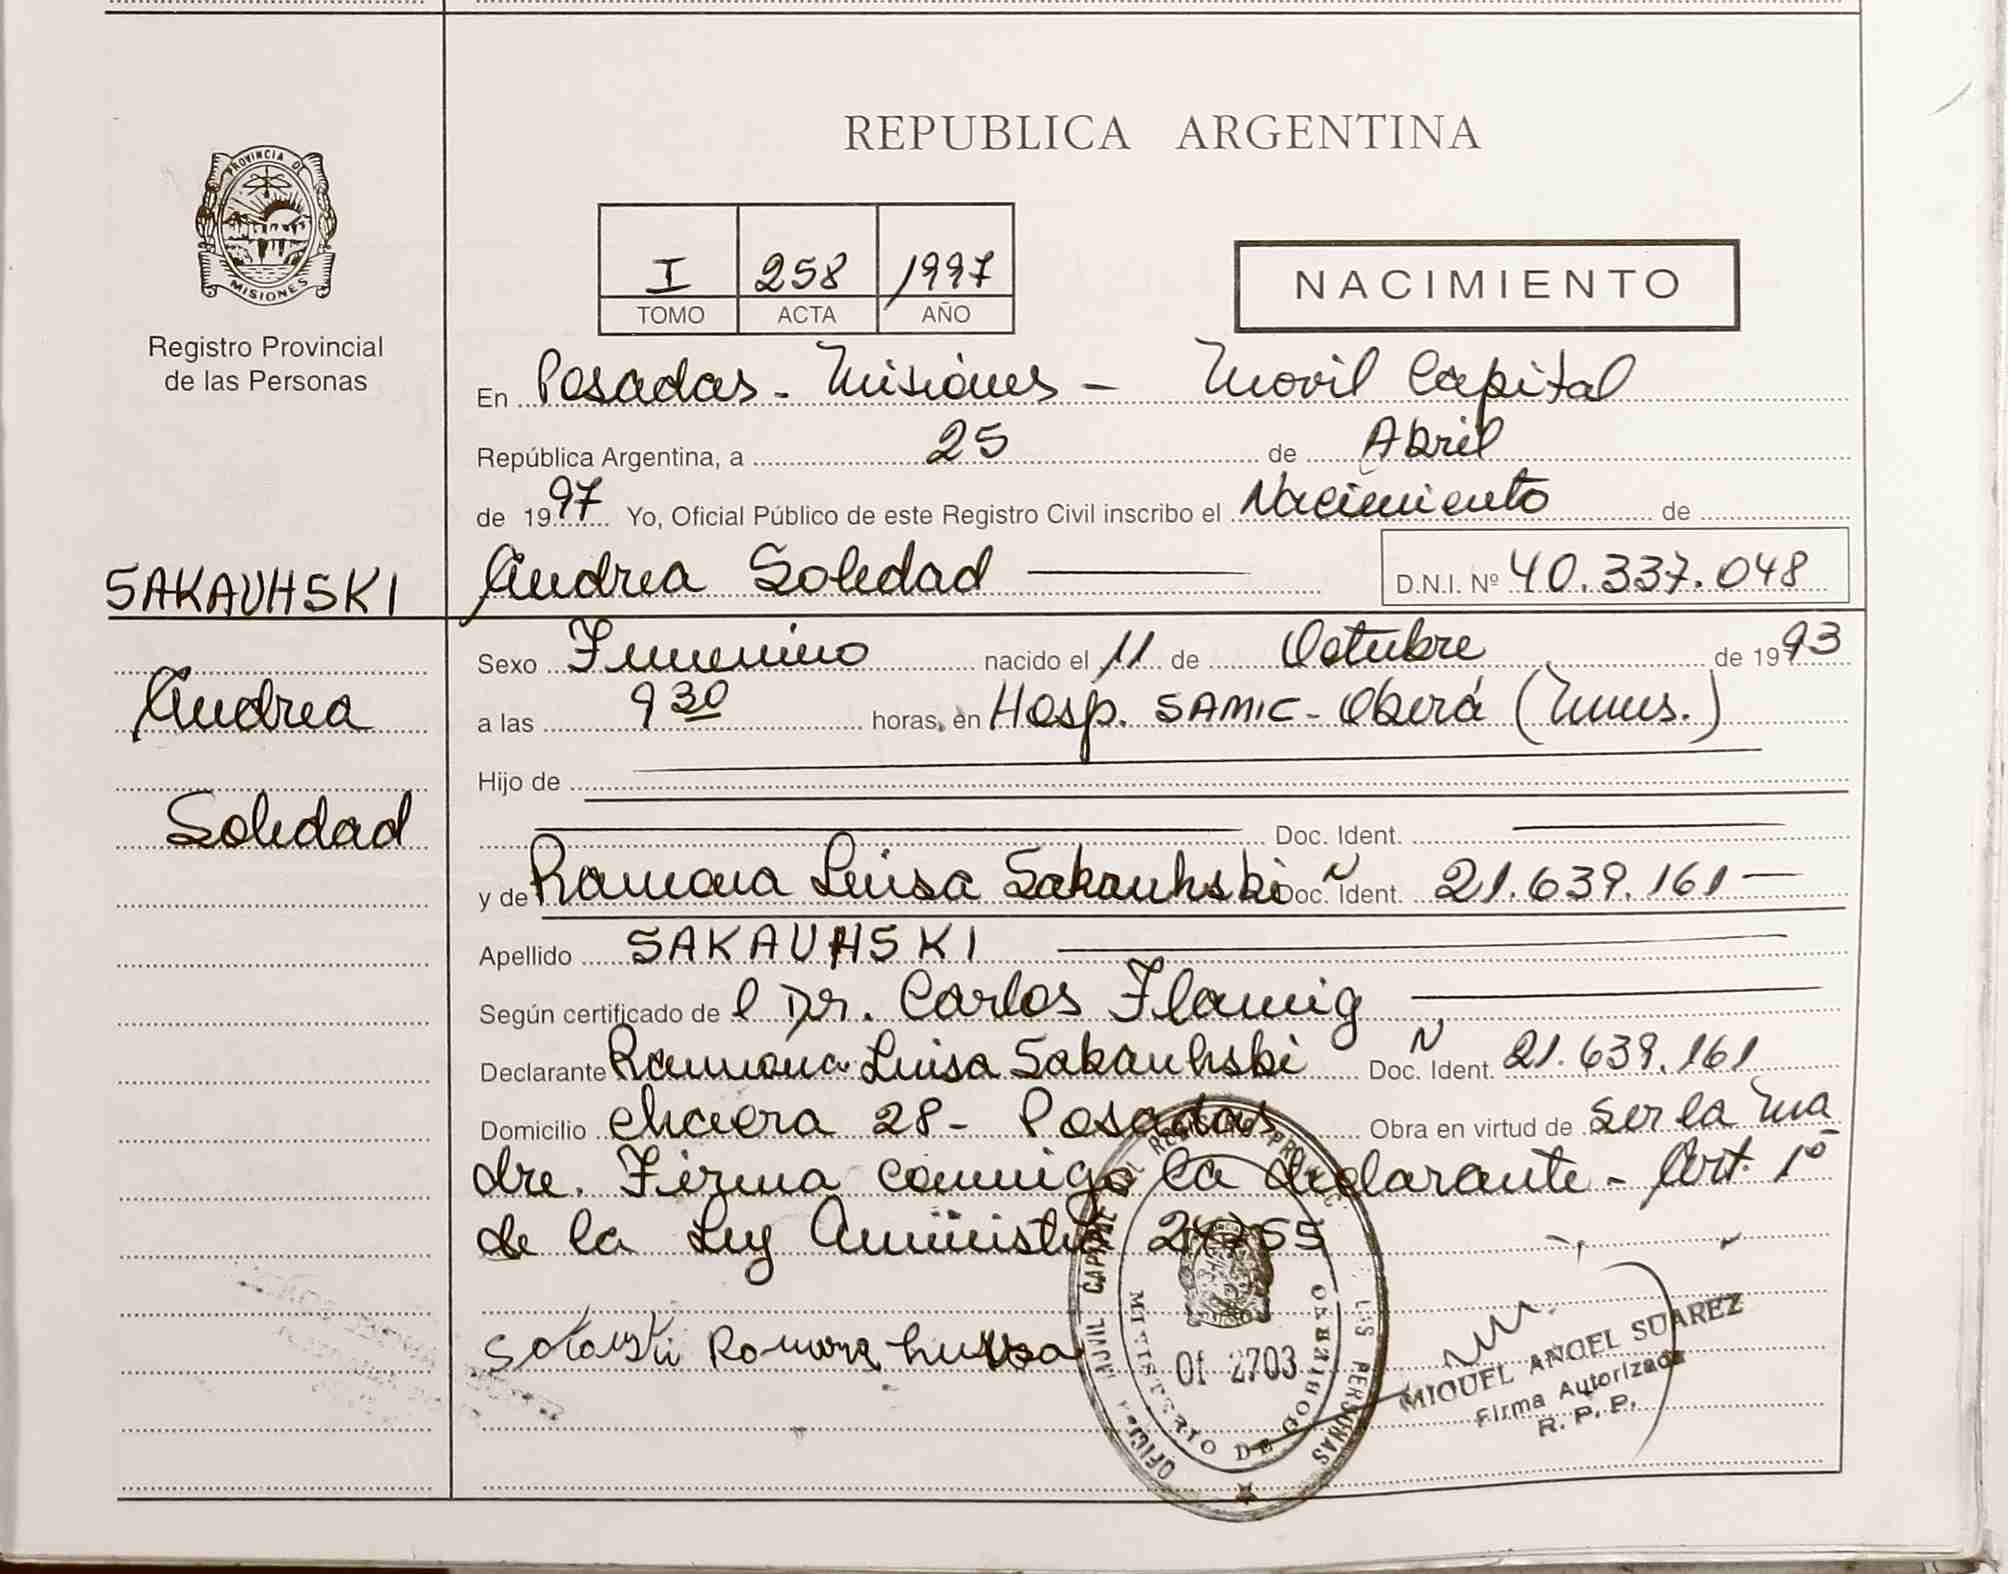 REPUBLICA ARGENTINA
PROVINCIA DE
MISIONES
Registro Provincial
de las Personas
I 258 1997
TOMO ACTA AÑO
NACIMIENTO
En Posadas - Misiones - Movil Capital
República Argentina, a 25 de Abril
de 1997 Yo, Oficial Público de este Registro Civil inscribo el Nacimiento de
SAKAUHSKI
Andrea Soledad D.N.I. Nº 40.337.048
Andrea
Soledad
Sexo Femenino nacido el 11 de Octubre de 1993
a las 9 30 horas, en Hosp. SAMIC - Oberá (Mnes.)
Hijo de
Doc. Ident.
y de Ramona Luisa Sakauhski Doc. Ident. Nº 21.639.161 -
Apellido SAKAUHSKI
Según certificado de l Dr. Carlos Flamig
Declarante Ramona Luisa Sakauhski Doc. Ident. Nº 21.639.161
Domicilio chacra 28 - Posadas Obra en virtud de ser la ma
dre. Firma conmigo la declarante - Art. 1º
de la Ley
Ramona Luisa
MINISTERIO DE GOBIERNO
01 2703
MIGUEL ANGEL SUAREZ
Firma Autorizada
R. P. P.